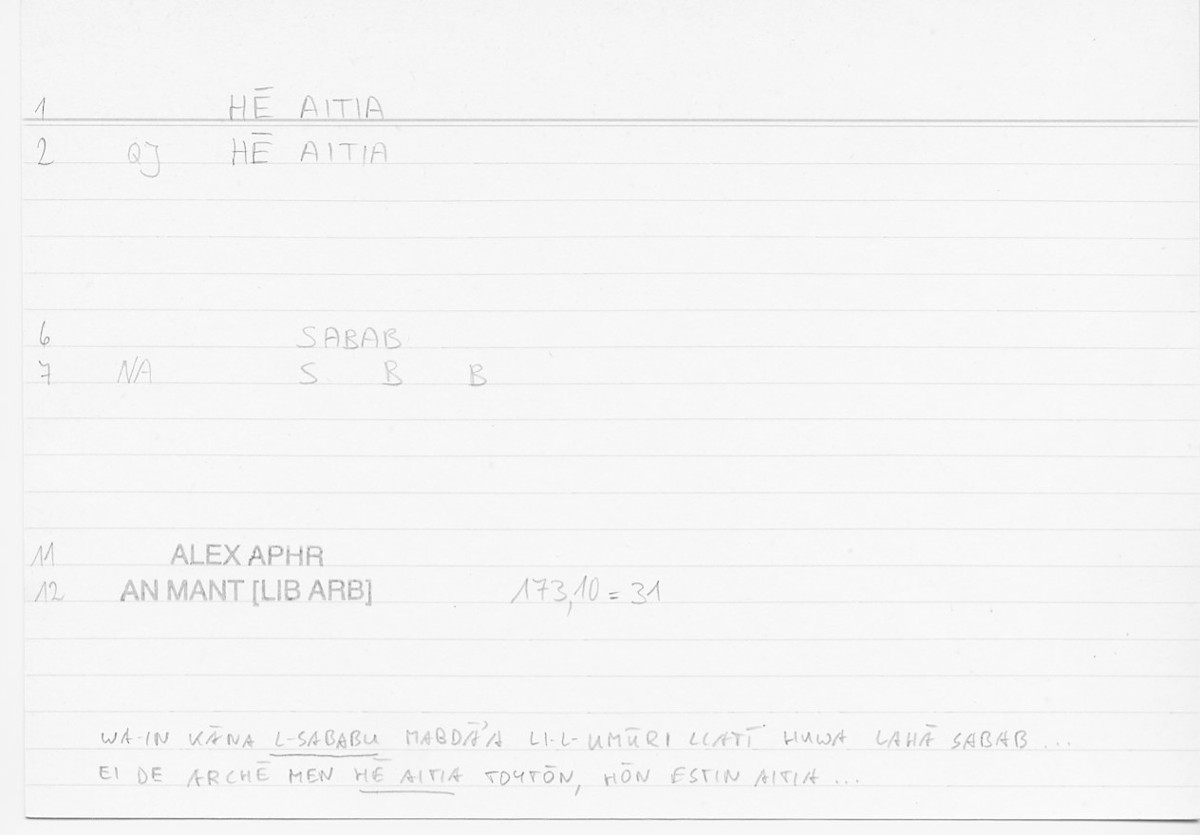 1 HĒ AITIA
2 QJ HĒ AITIA
6 SABAB
7 NA S B B
11 ALEX APHR
12 AN MANT [LIB ARB] 173,10 = 31
WA-IN KĀNA L-SABABU MABDAʾA LI-L-UMŪRI LLATĪ HUWA LAHĀ SABAB ...
EI DE ARCHĒ MEN HĒ AITIA TOYTŌN, HŌN ESTIN AITIA ...